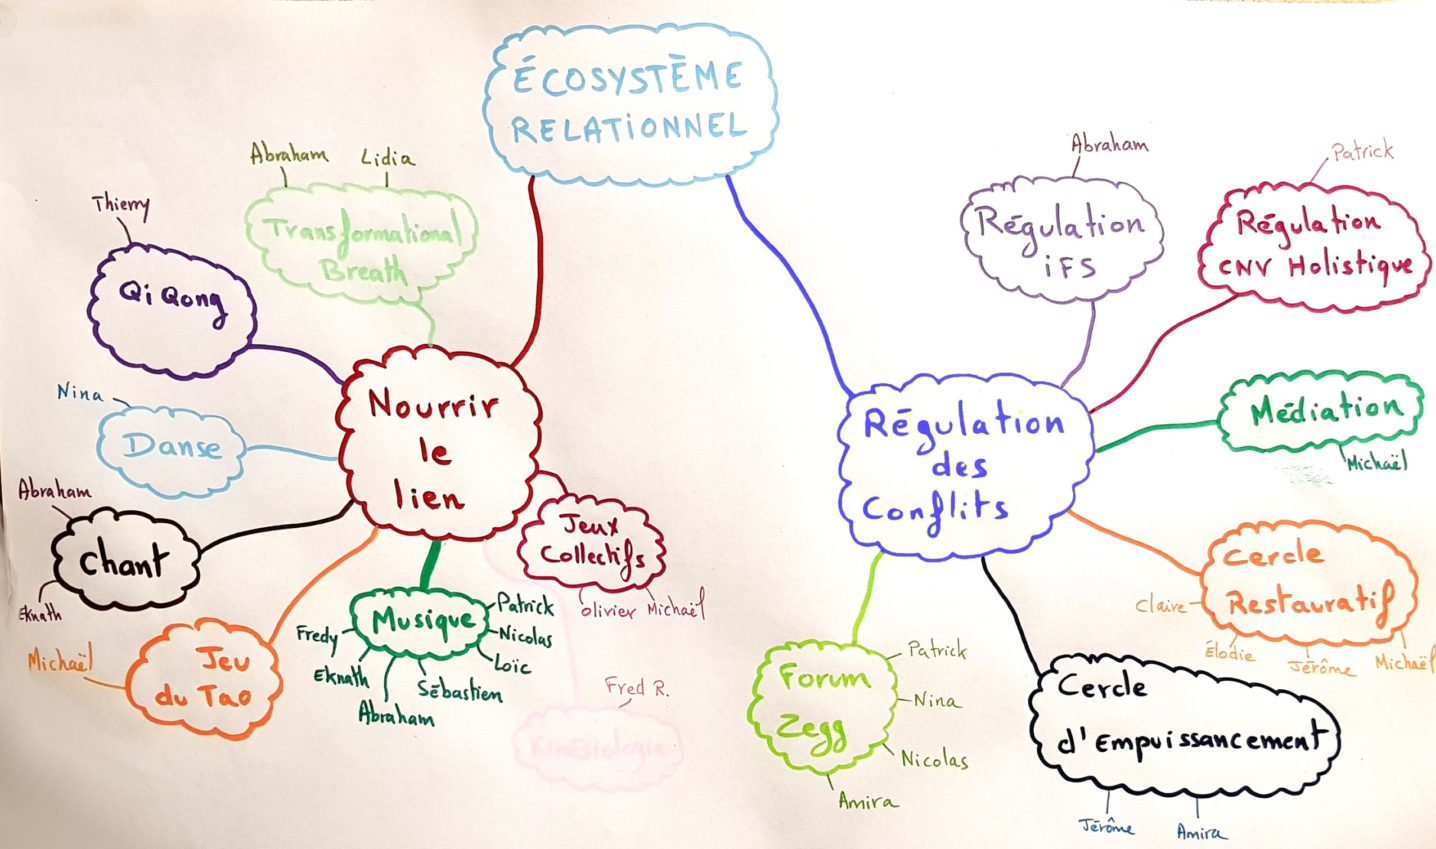 ÉCOSYSTÈME
RELATIONNEL
Abraham
Lidia
Transformational
Breath
Thierry
Qi Qong
Nina
Danse
Abraham
Chant
Eknath
Michaël
Jeu
du Tao
Nourrir
le
lien
Jeux
Collectifs
Olivier
Michaël
Musique
Patrick
Nicolas
Loïc
Sébastien
Abraham
Eknath
Fredy
Fred R.
Kinésiologie
Régulation
des
Conflits
Abraham
Régulation
iFS
Patrick
Régulation
CNV Holistique
Médiation
Michaël
Cercle
Restauratif
Claire
Élodie
Jérôme
Michaël
Cercle
d'Empuissancement
Jérôme
Amira
Forum
Zegg
Patrick
Nina
Nicolas
Amira